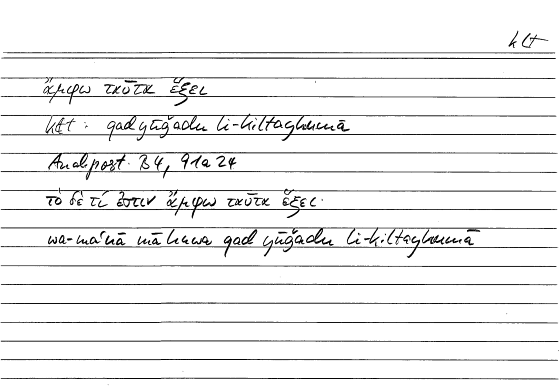 klt
ἄμφω ταῦτα ἕξει
klt: qad yūǧadu li-kiltayhumā
Anal. post. B 4, 91a 24
τὸ δὲ τί ἐστιν ἄμφω ταῦτα ἕξει·
wa-maʿnā mā huwa qad yūǧadu li-kiltayhumā